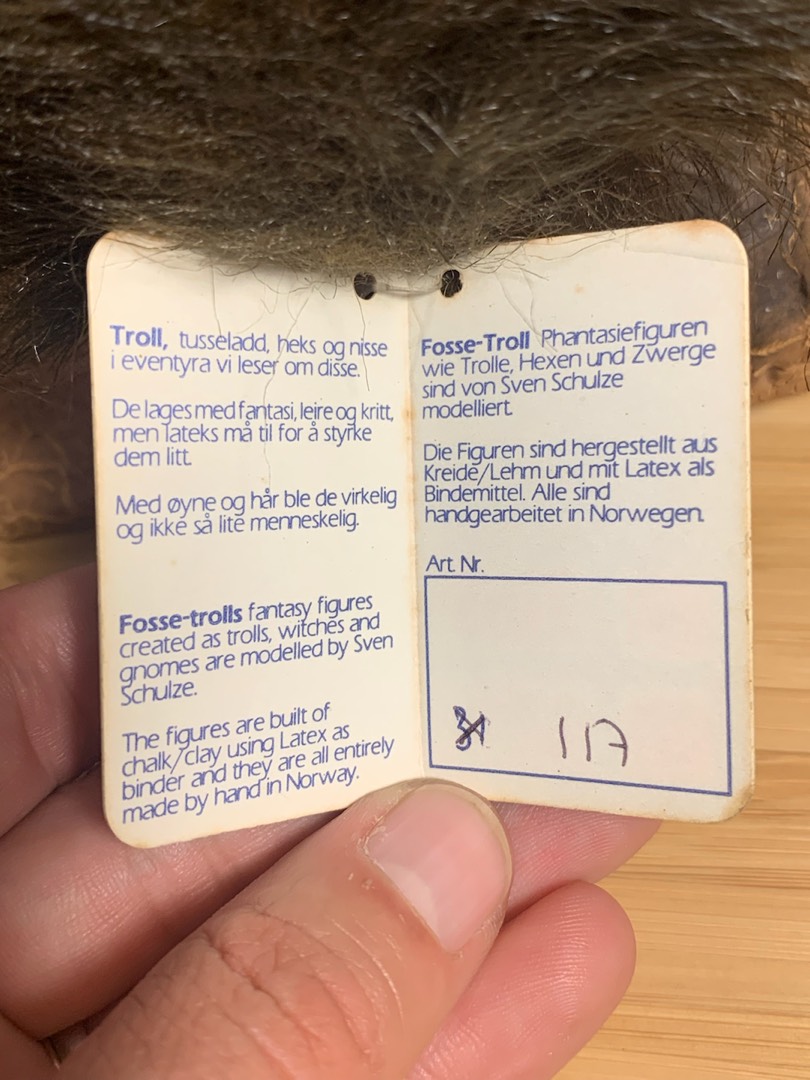 Troll, tusseladd, heks og nisse
i eventyra vi leser om disse.
De lages med fantasi, leire og kritt,
men lateks må til for å styrke
dem litt.
Med øyne og hår ble de virkelig
og ikke så lite menneskelig.
Fosse-trolls fantasy figures
created as trolls, witches and
gnomes are modelled by Sven
Schulze.
The figures are built of
chalk/clay using Latex as
binder and they are all entirely
made by hand in Norway.
Fosse-Troll Phantasiefiguren
wie Trolle, Hexen und Zwerge
sind von Sven Schulze
modelliert.
Die Figuren sind hergestellt aus
Kreide/Lehm und mit Latex als
Bindemittel. Alle sind
handgearbeitet in Norwegen.
Art. Nr.
117